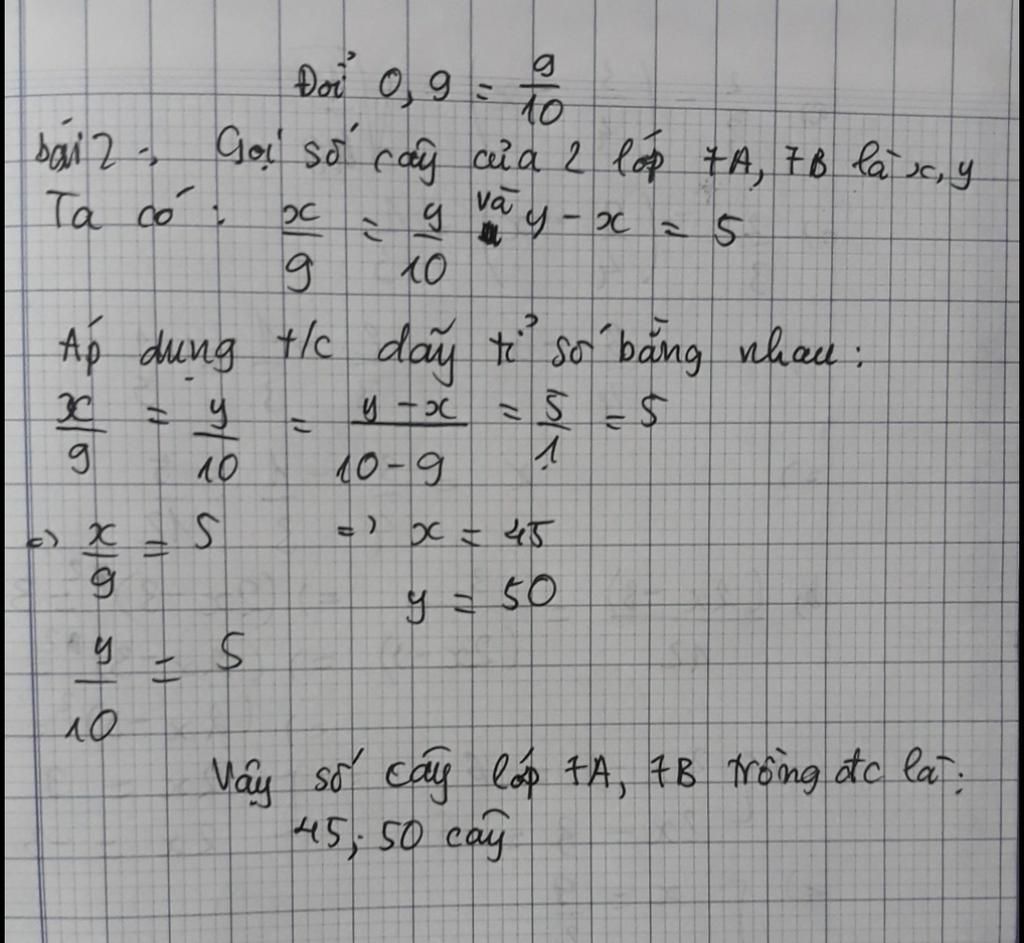 Đổi 0,9 = 9/10
bài 2: Gọi số cây của 2 lớp 7A, 7B là x, y
Ta có: x/9 = y/10 và y - x = 5
Áp dụng t/c dãy tỉ số bằng nhau:
x/9 = y/10 = y - x/10 - 9 = 5/1 = 5
=> x/9 = 5 => x = 45
y = 50
y/10 = 5
Vậy số cây lớp 7A, 7B trồng đc là:
45; 50 cây